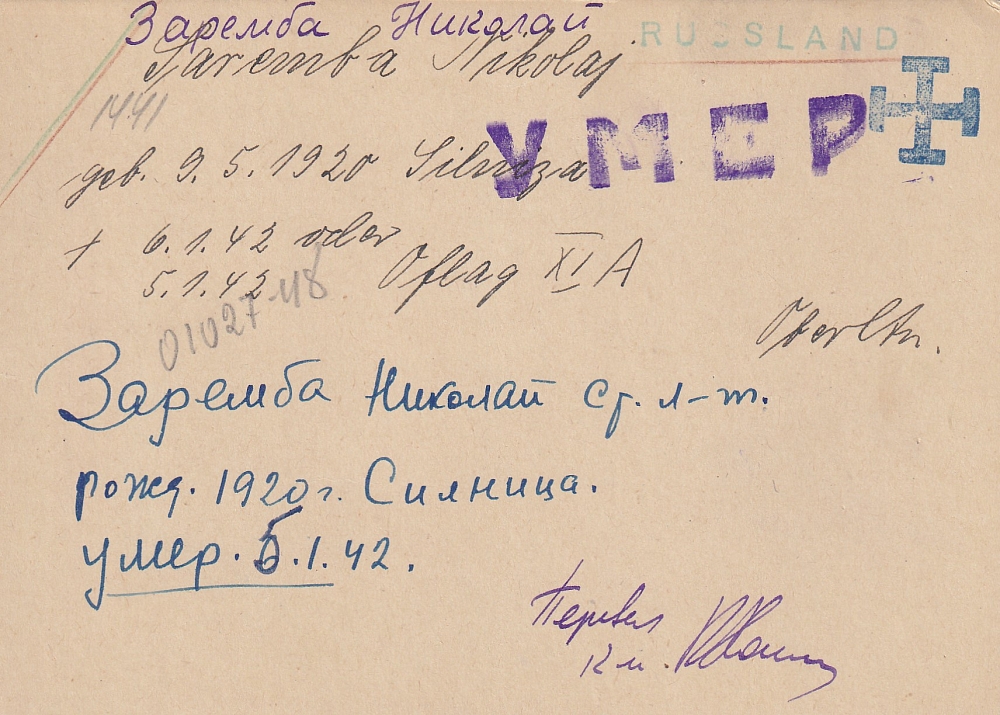 Заремба Николай
RUSSLAND
Saremba Nikolaj
1441
УМЕР
geb. 9.5.1920 Silniza
+ 6.1.42 oder
5.1.42 Oflag XI A
01027-48
Oberltn.
Заремба Николай Ст. л-т.
рожд. 1920 г. Силница.
умер. 5.1.42.
Перевел